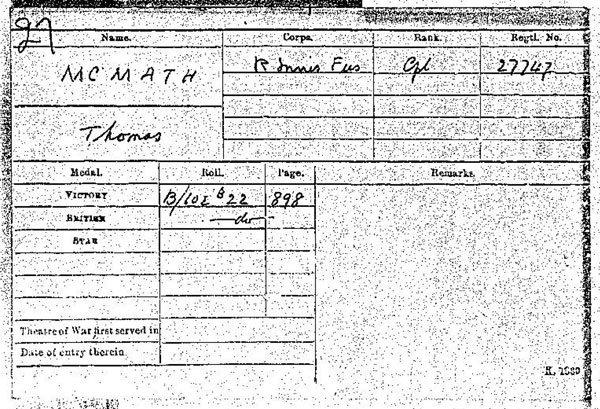 27
Name. Corps. Rank. Regtl. No.
MCMATH R Innis Fus Cpl 27747
Thomas
Medal. Roll. Page. Remarks.
VICTORY B/102 B22 898
BRITISH —do—
STAR
Theatre of War first served in
Date of entry therein
K. 1380